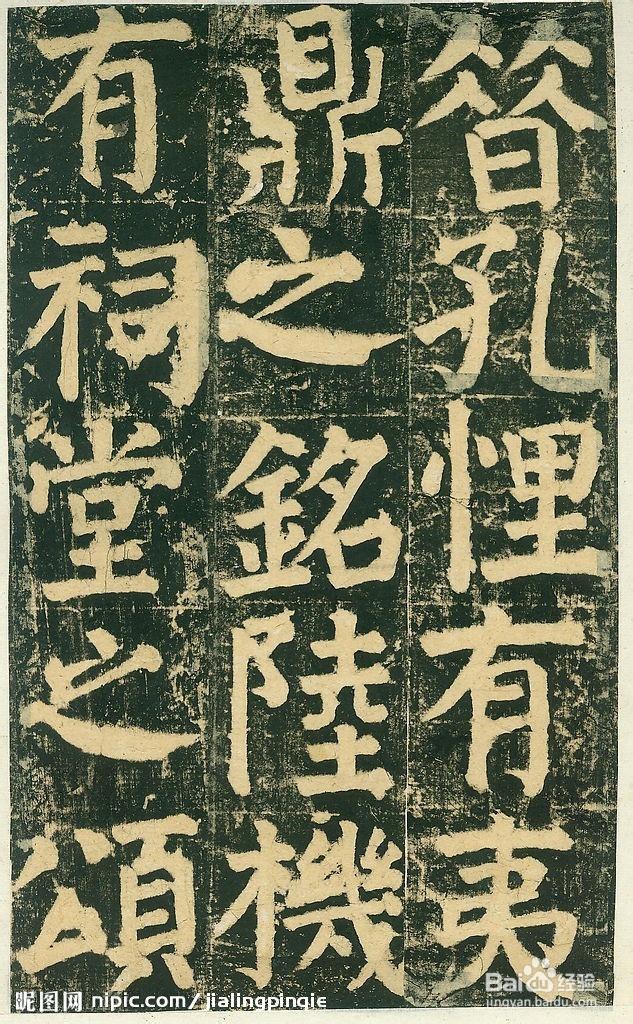 㫺孔悝有夷
鼎之銘陸機
有祠堂之頌
昵图网 nipic.com/jialingpingie
Baidu 经验
jingyan.baidu.com